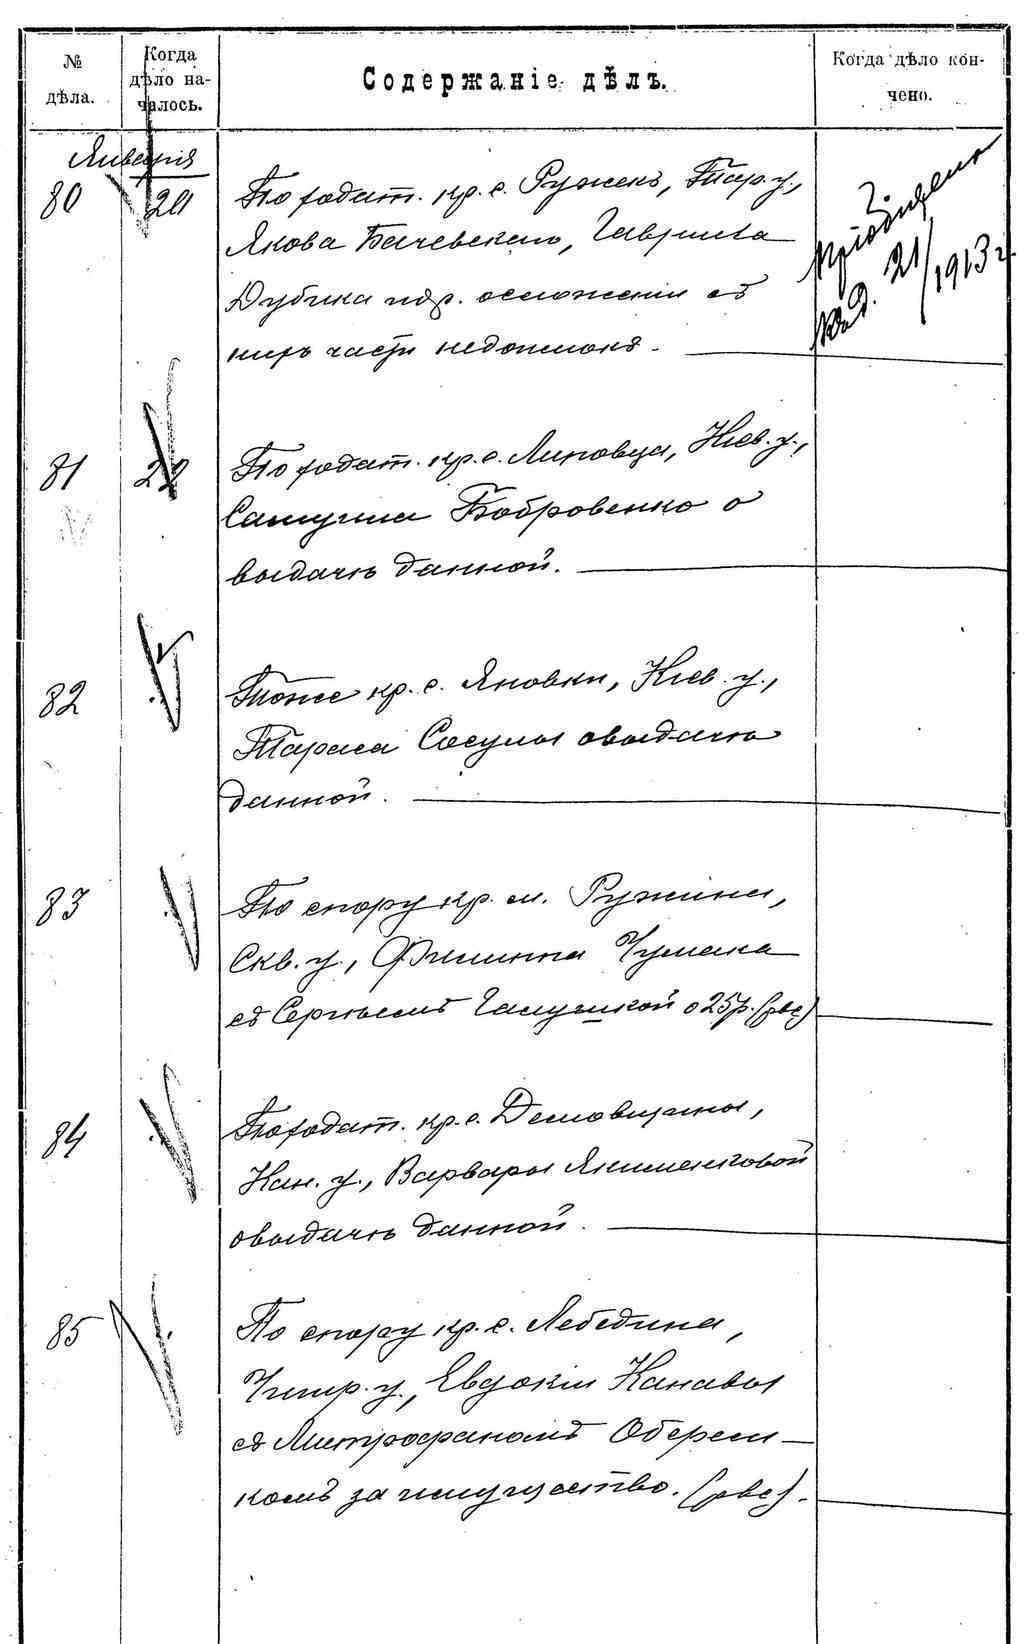 № дѣла.
Когда дѣло началось.
Содержаніе дѣлъ.
Когда дѣло кончено.
Января
80
20
По ходат. кр. с. Ружекъ, Тар. у.,
Якова Бачевскаго, Гаврила
Дубика и др. о сложеніи съ
нихъ части недоимокъ.
21/1913 г.
81
22
По ходат. кр. с. Липовца, Кіев. у.,
Самуила Бобровенко о
выдачѣ данной.
82
Тоже кр. с. Яновки, Кіев. у.,
Тараса Сосулы о выдачѣ
данной.
83
По спору кр. м. Ружина,
Скв. у., Филиппа Чумака
съ Сергѣемъ Галушкой о 25 р. (рвс)
84
По ходат. кр. с. Демовщины,
Кан. у., Варвары Якименковой
о выдачѣ данной.
85
По спору кр. с. Лебедина,
Чигир. у., Евдокіи Канавы
съ Митрофаномъ Оберем-
комъ за имущество. (рвс).